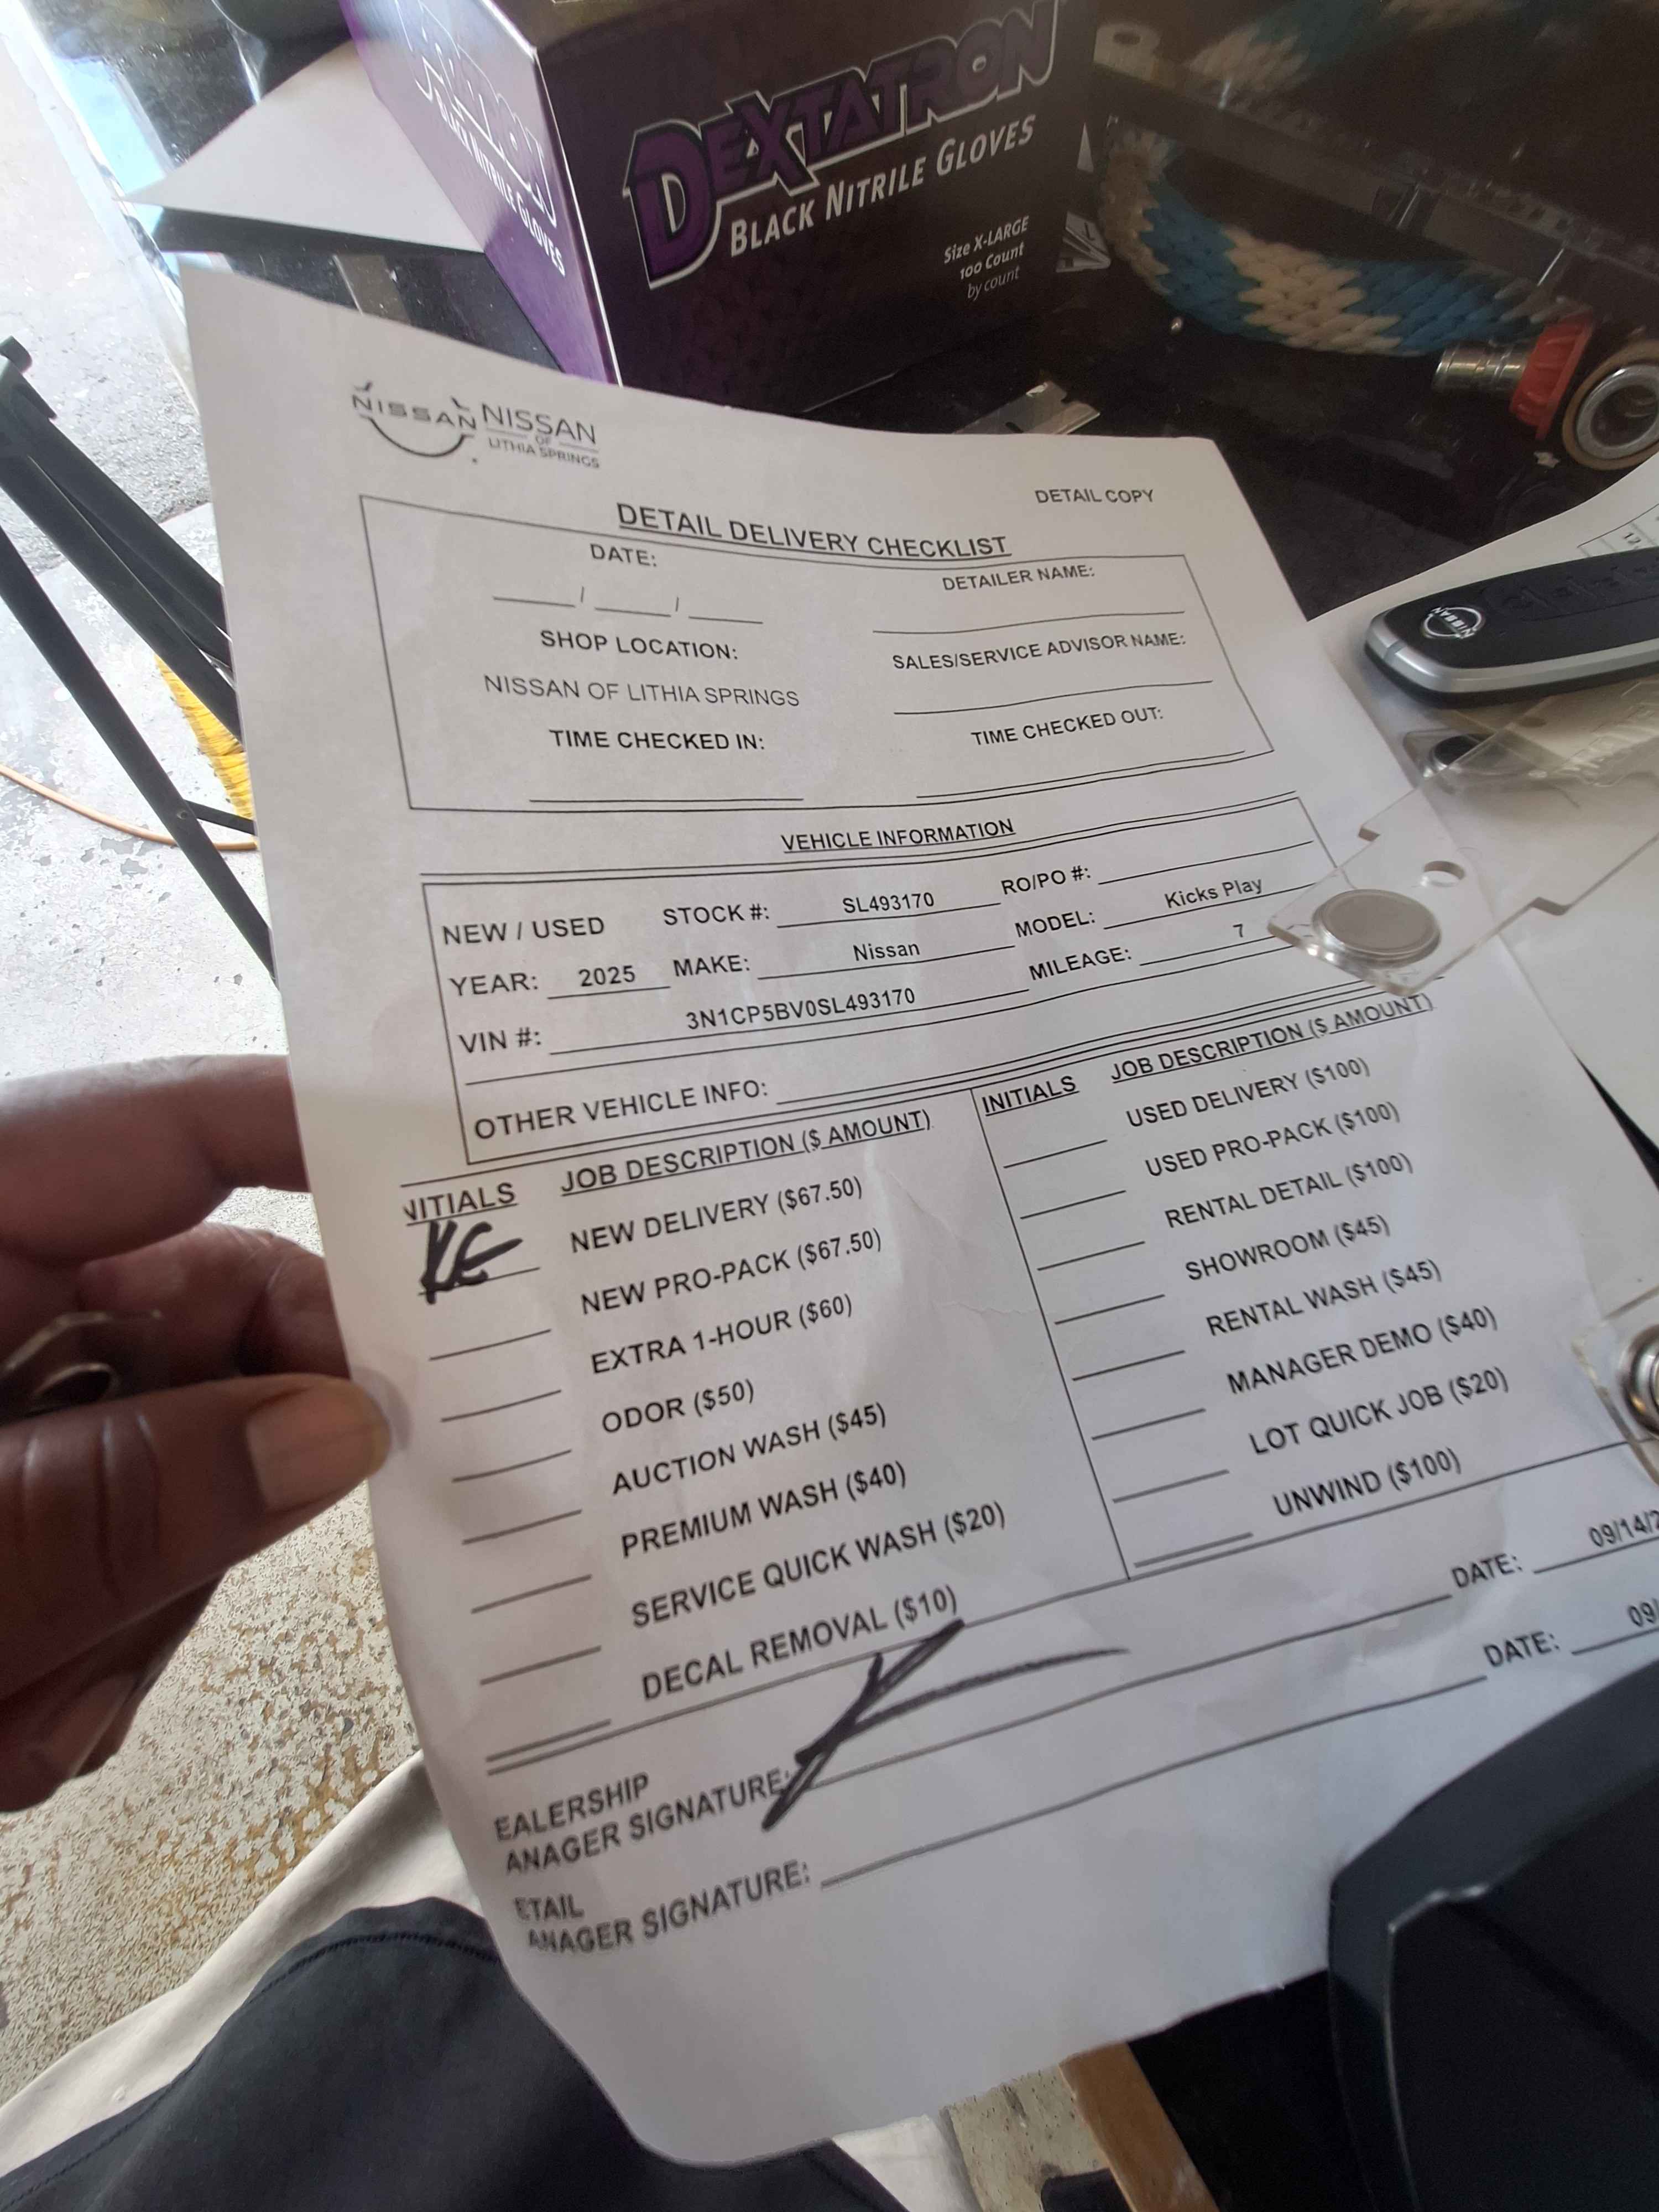 DEXTATRON
BLACK NITRILE GLOVES
Size X-LARGE
100 Count
by count
BLACK NITRILE GLOVES
NISSAN NISSAN
OF
LITHIA SPRINGS
DETAIL COPY
DETAIL DELIVERY CHECKLIST
DATE: DETAILER NAME:
____/____/____
SHOP LOCATION: SALES/SERVICE ADVISOR NAME:
NISSAN OF LITHIA SPRINGS
TIME CHECKED IN: TIME CHECKED OUT:
NISSAN
VEHICLE INFORMATION
NEW / USED STOCK #: SL493170 RO/PO #:
YEAR: 2025 MAKE: Nissan MODEL: Kicks Play
VIN #: 3N1CP5BV0SL493170 MILEAGE: 7
OTHER VEHICLE INFO:
NITIALS JOB DESCRIPTION ($ AMOUNT) INITIALS JOB DESCRIPTION ($ AMOUNT)
KE NEW DELIVERY ($67.50) USED DELIVERY ($100)
NEW PRO-PACK ($67.50) USED PRO-PACK ($100)
EXTRA 1-HOUR ($60) RENTAL DETAIL ($100)
ODOR ($50) SHOWROOM ($45)
AUCTION WASH ($45) RENTAL WASH ($45)
PREMIUM WASH ($40) MANAGER DEMO ($40)
SERVICE QUICK WASH ($20) LOT QUICK JOB ($20)
DECAL REMOVAL ($10) UNWIND ($100)
EALERSHIP
ANAGER SIGNATURE: DATE: 09/14/2
ETAIL
ANAGER SIGNATURE: DATE: 09/